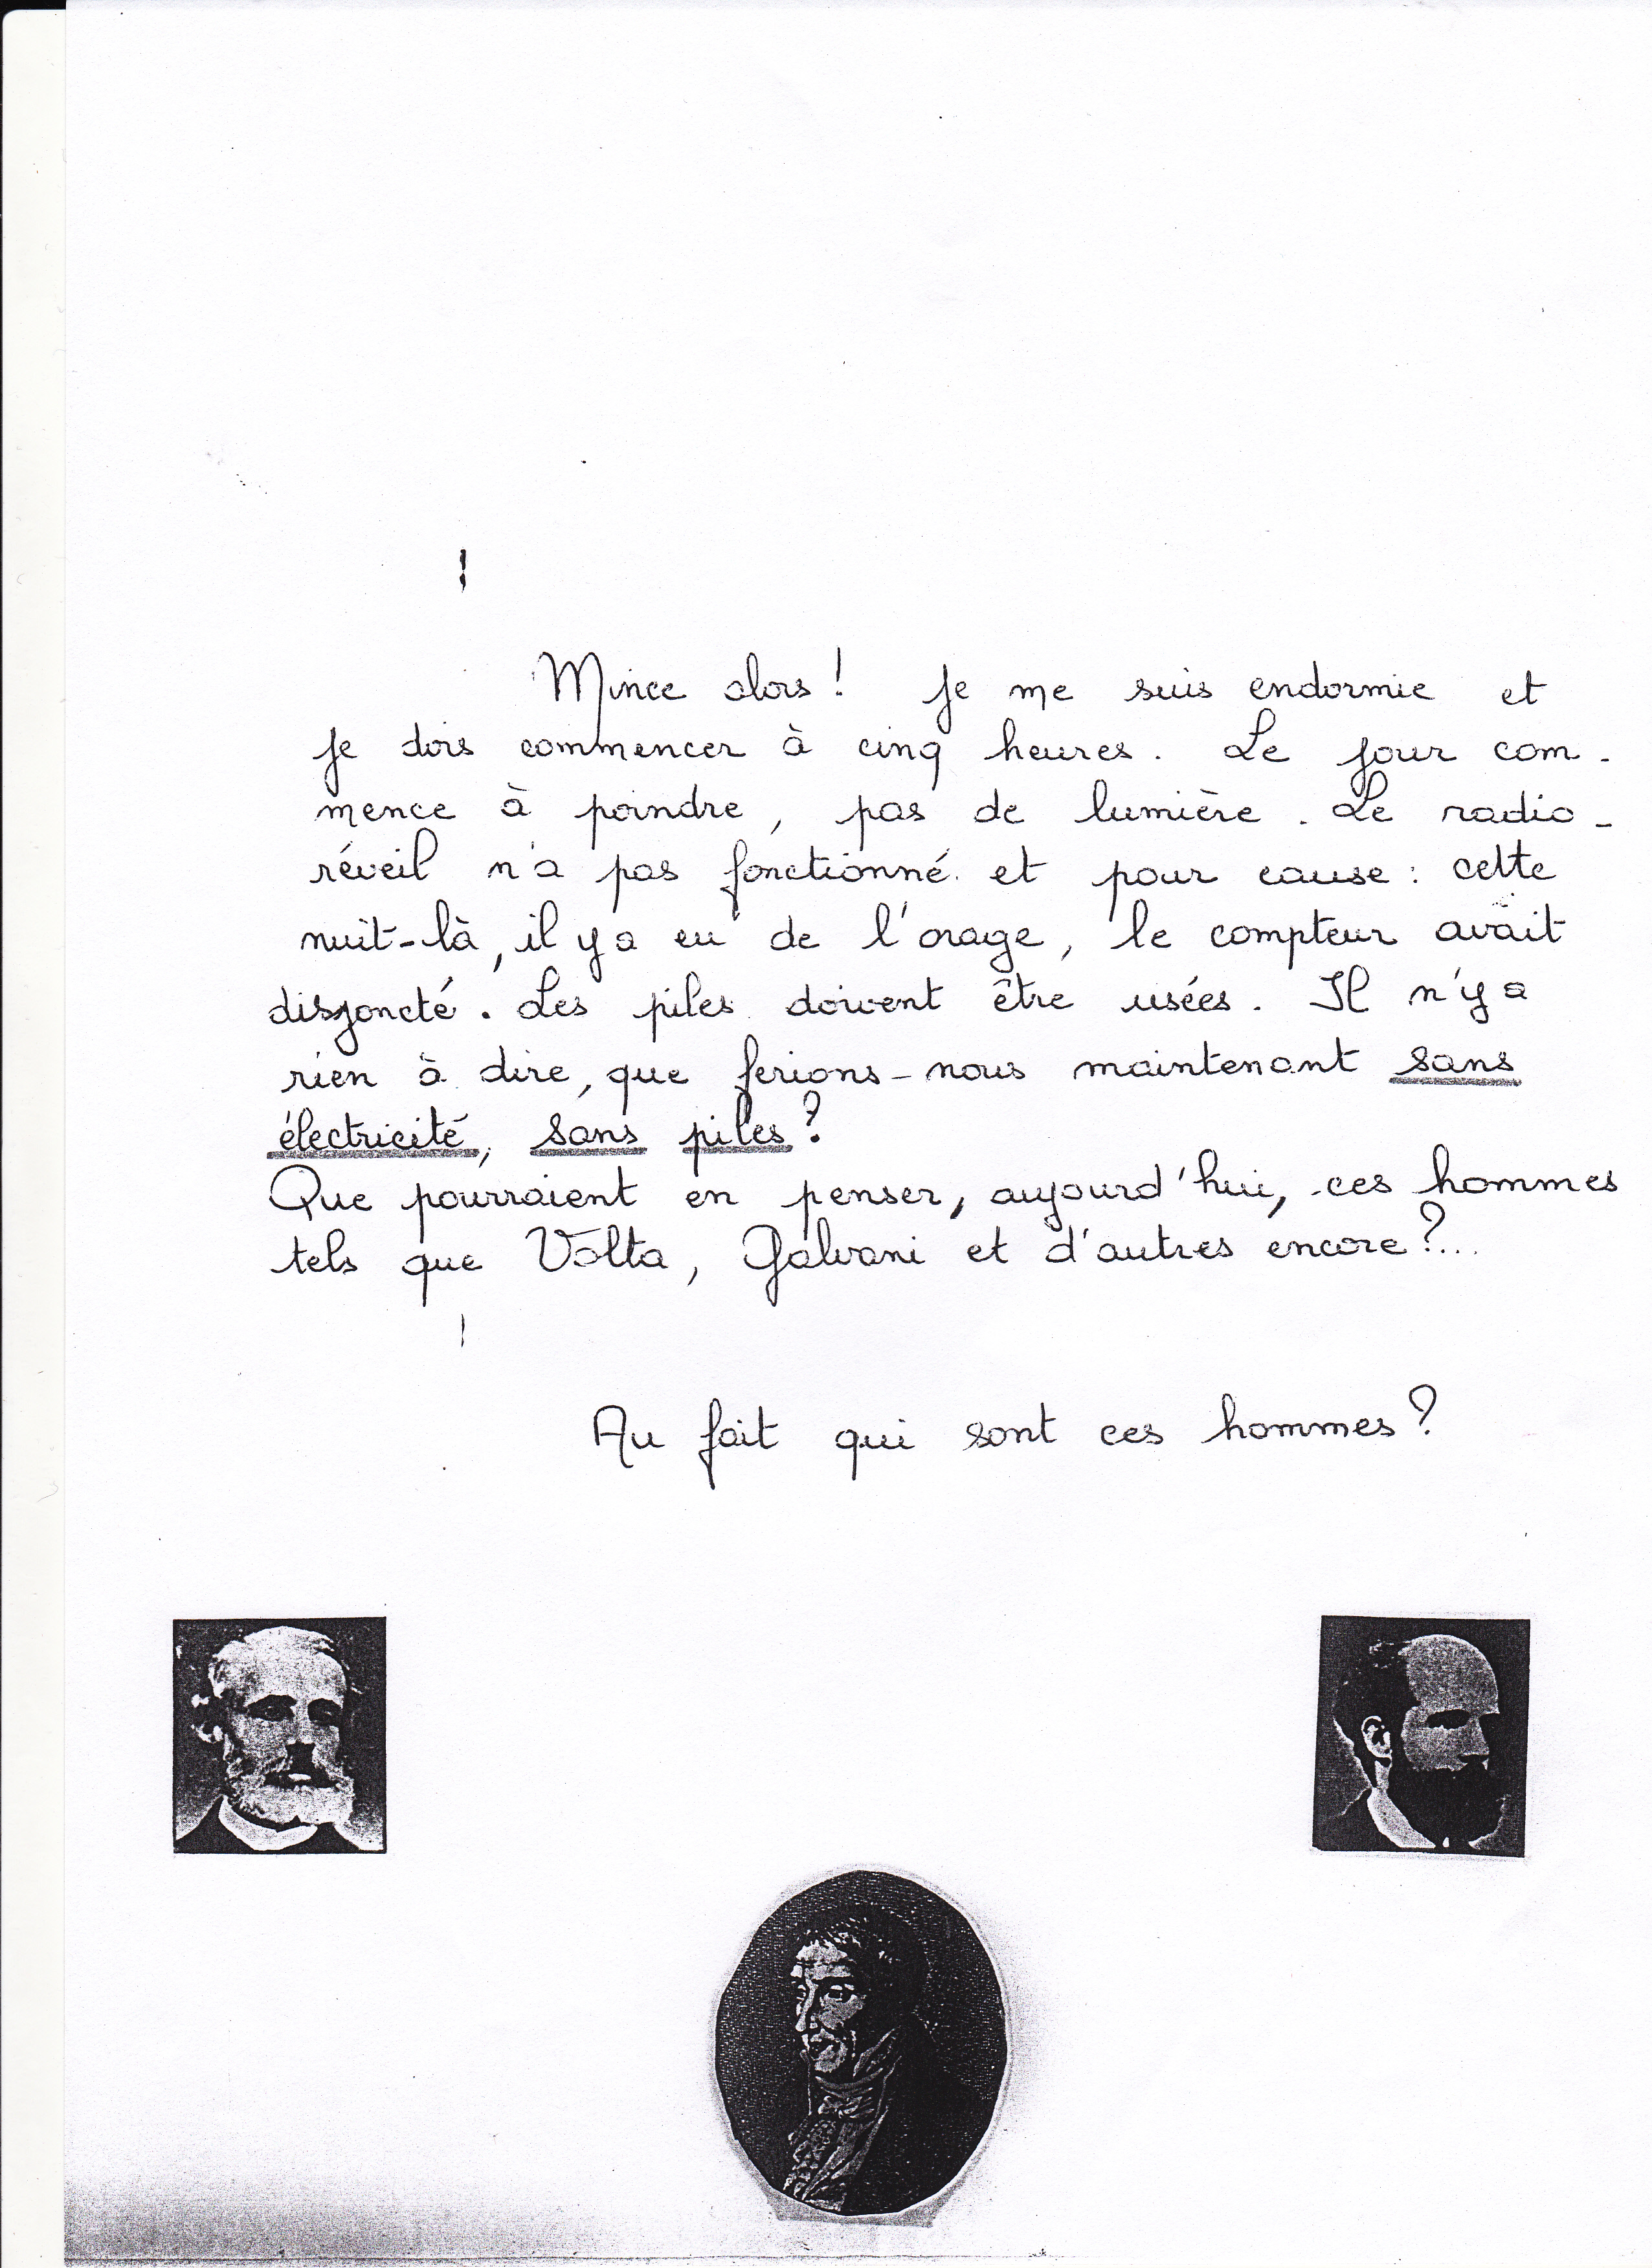 Mince alors ! Je me suis endormie et
je dois commencer à cinq heures. Le jour com-
mence à poindre, pas de lumière. Le radio-
réveil n'a pas fonctionné et pour cause : cette
nuit-là, il y a eu de l'orage, le compteur avait
disjoncté. Les piles doivent être usées. Il n'y a
rien à dire, que ferions-nous maintenant sans
électricité, sans piles ?
Que pourraient en penser, aujourd'hui, ces hommes
tels que Volta, Galvani et d'autres encore ?...
Au fait qui sont ces hommes ?